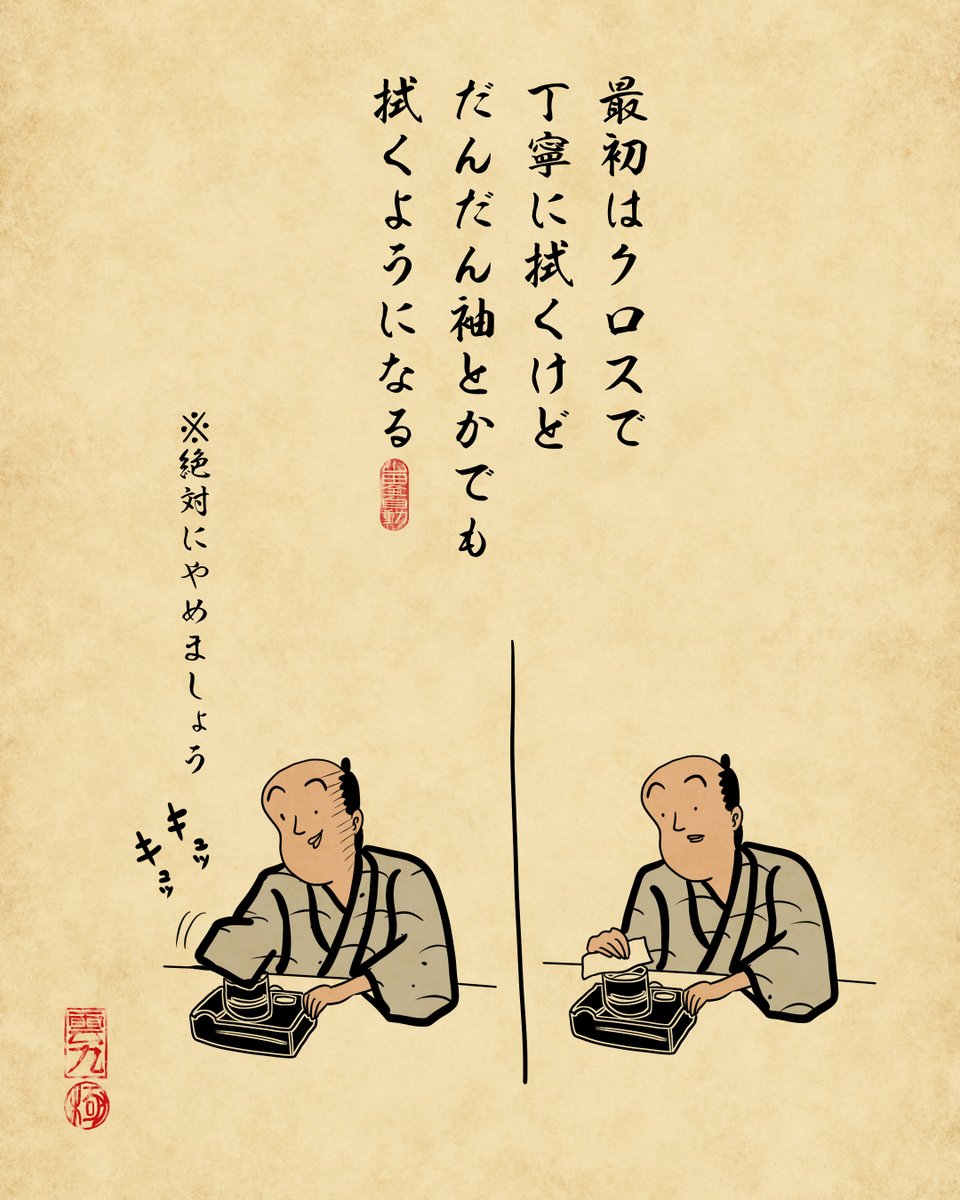 最初はクロスで
丁寧に拭くけど
だんだん袖とかでも
拭くようになる
※絶対にやめましょう
キュッ
キュッ